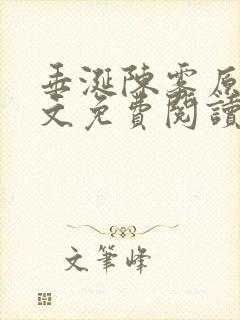 垂涎陳雾原
文免費閱讀
文筆峰